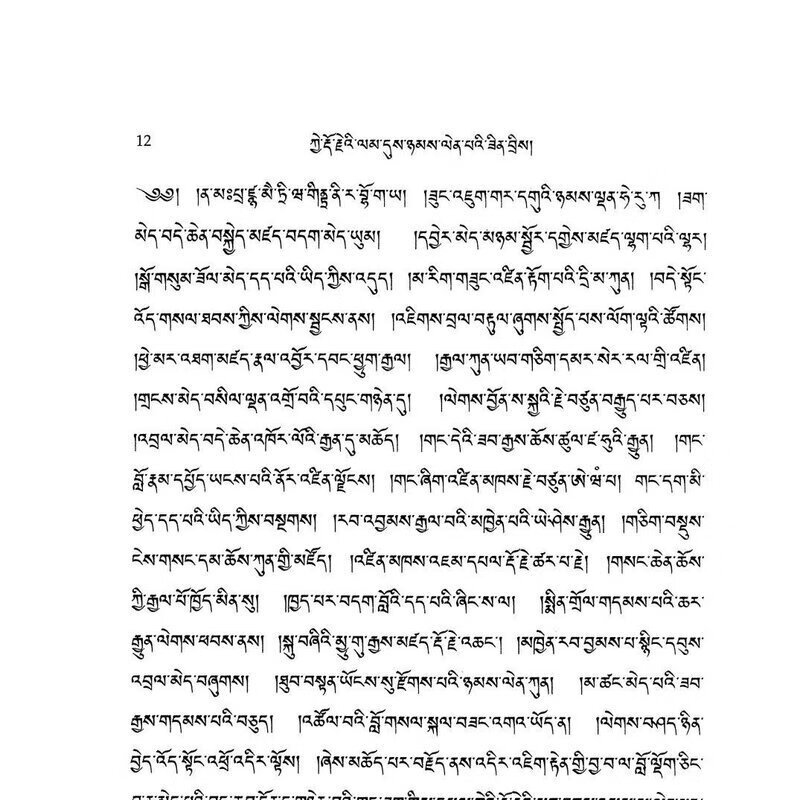 12
ཀྱེ་རྡོ་རྗེའི་ལམ་དུས་ཉམས་ལེན་པའི་ཟིན་བྲིས།
༄༅། །ན་མཿཔྲ་ཛྙཱ་མཻ་ཏྲི་ཝ་གིནྡྲ་ནི་ར་བྷོ་ག་ཡ། །ཟུང་འཇུག་གར་དགུའི་ཉམས་ལྡན་ཧེ་རུ་ཀ །ཟག་
མེད་བདེ་ཆེན་བསྐྱེད་མཛད་བདག་མེད་ཡུམ། །དབྱེར་མེད་མཉམ་སྦྱོར་དགྱེས་མཛད་ལྷག་པའི་ལྷར།
།སྒོ་གསུམ་ཟོལ་མེད་དད་པའི་ཡིད་ཀྱིས་འདུད། །མ་རིག་གཟུང་འཛིན་རྟོག་པའི་དྲི་མ་ཀུན། །བདེ་སྟོང་
འོད་གསལ་ཐབས་ཀྱིས་ལེགས་སྦྱངས་ནས། །འཇིགས་བྲལ་བརྟུལ་ཞུགས་སྤྱོད་པས་ལོག་ལྟའི་ཚོགས།
།ཕྱེ་མར་འཐག་མཛད་རྣལ་འབྱོར་དབང་ཕྱུག་རྒྱལ། །རྒྱལ་ཀུན་ཡབ་གཅིག་དམར་སེར་རལ་གྲི་འཛིན།
།གྲངས་མེད་བསིལ་ལྡན་འགྲོ་བའི་དཔུང་གཉེན་དུ། །ལེགས་བྱོན་ས་སྐྱའི་རྗེ་བཙུན་བརྒྱུད་པར་བཅས།
།འབྲལ་མེད་བདེ་ཆེན་འཁོར་ལོའི་རྒྱན་དུ་མཆོད། །གང་དེའི་ཟབ་རྒྱས་ཆོས་ཚུལ་ཛ་ཧུའི་རྒྱུན། །གང་
བློ་རྣམ་དཔྱོད་ཡངས་པའི་ནོར་འཛིན་ལྗོངས། །གང་ཞིག་འཛིན་མཁས་རྗེ་བཙུན་ཨེ་ཝཾ་པ། གང་དག་མི་
ཕྱེད་དད་པའི་ཡིད་ཀྱིས་བསྔགས། །རབ་འབྱམས་རྒྱལ་བའི་མཁྱེན་པའི་ཡེ་ཤེས་རྒྱུན། །གཅིག་བསྡུས་
ངེས་གསང་དམ་ཆོས་ཀུན་གྱི་མཛོད། །འཛིན་མཁས་འཇམ་དཔལ་རྡོ་རྗེ་ཚར་པ་རྗེ། །གསང་ཆེན་ཆོས་
ཀྱི་རྒྱལ་པོ་ཁྱོད་མིན་སུ། །ཁྱད་པར་བདག་བློའི་དད་པའི་ཞིང་ས་ལ། །སྨིན་གྲོལ་གདམས་པའི་ཆར་
རྒྱུན་ལེགས་ཕབས་ནས། །སྐུ་བཞིའི་མྱུ་གུ་རྒྱས་མཛད་རྡོ་རྗེ་འཆང་། །མཁྱེན་རབ་བྱམས་པ་སྙིང་དབུས་
འབྲལ་མེད་བཞུགས། །ཐུབ་བསྟན་ཡོངས་སུ་རྫོགས་པའི་ཉམས་ལེན་ཀུན། །མ་ཚང་མེད་པའི་ཟབ་
རྒྱས་གདམས་པའི་བཅུད། །འཚོལ་བའི་བློ་གསལ་སྐལ་བཟང་འགའ་ཡོད་ན། །ལེགས་བཤད་ཉིན་
བྱེད་འོད་སྟོང་འཕྲོ་འདིར་ལྟོས། །ཞེས་མཆོད་པར་བརྗོད་ནས་འདིར་འཇིག་རྟེན་གྱི་བྱ་བ་ལ་བློ་ལྡོག་ཅིང་